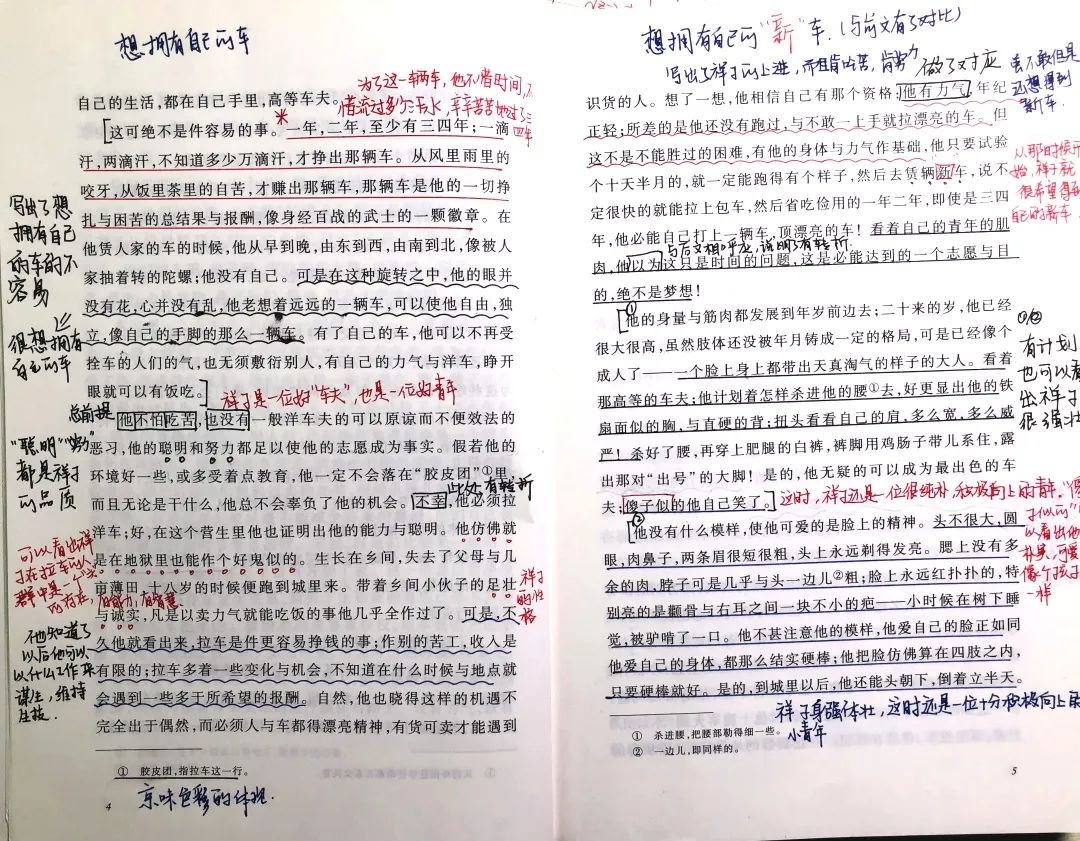 想拥有自己的车
为了这一辆车，他不惜时间，不
惜流过多少汗水，辛辛苦苦地过了三
四年
自己的生活，都在自己手里，高等车夫。
这可绝不是件容易的事。一年，二年，至少有三四年；一滴
汗，两滴汗，不知道多少万滴汗，才挣出那辆车。从风里雨里的
咬牙，从饭里茶里的自苦，才赚出那辆车，那辆车是他的一切挣
扎与困苦的总结果与报酬，像身经百战的武士的一颗徽章。在
他赁人家的车的时候，他从早到晚，由东到西，由南到北，像被人
家抽着转的陀螺；他没有自己。可是在这种旋转之中，他的眼并
没有花，心并没有乱，他老想着远远的一辆车，可以使他自由，独
立，像自己的手脚的那么一辆车。有了自己的车，他可以不再受
拴车的人们的气，也无须敷衍别人，有自己的力气与洋车，睁开
眼就可以有饭吃。
祥子是一位好“车夫”，也是一位好青年
他不怕吃苦，也没有一般洋车夫的可以原谅而不便效法的
恶习，他的聪明和努力都足以使他的志愿成为事实。假若他的
环境好一些，或多受着点教育，他一定不会落在“胶皮团”①里，
此处有转折
而且无论是干什么，他总不会辜负了他的机会。不幸，他必须拉
洋车；好，在这个营生里他也证明出他的能力与聪明。他仿佛就
是在地狱里也能作个好鬼似的。生长在乡间，失去了父母与几
亩薄田，十八岁的时候便跑到城里来。带着乡间小伙子的足壮
与诚实，凡是以卖力气就能吃饭的事他几乎全作过了。可是，不
久他就看出来，拉车是件更容易挣钱的事；作别的苦工，收入是
有限的；拉车多着一些变化与机会，不知道在什么时候与地点就
会遇到一些多于所希望的报酬。自然，他也晓得这样的机遇不
完全出于偶然，而必须人与车都得漂亮精神，有货可卖才能遇到
写出了想
拥有自己
的车的不
容易
很想拥有
自己的车
总前提
“聪明”“努力”
都是祥子
的品质
可以看出祥
子在拉车的人
群中是一个
的存在，有能力，有智慧
祥子
的性
格
他知道了
以后他可以
以什么工作来
谋生，维持
生技．
① 胶皮团，指拉车这一行。
4
京味色彩的体现．
想拥有自己的“新”车．（与前文有了对比）
写出了祥子的上进，而且肯吃苦，肯努力
做了对应
虽不敢但是
还想得到
新车．
识货的人。想了一想，他相信自己有那个资格：他有力气，年纪
正轻；所差的是他还没有跑过，与不敢一上手就拉漂亮的车。但
这不是不能胜过的困难，有他的身体与力气作基础，他只要试验
个十天半月的，就一定能跑得有个样子，然后去赁辆新车，说不
定很快的就能拉上包车，然后省吃俭用的一年二年，即使是三四
年，他必能自己打上一辆车，顶漂亮的车！看着自己的青年的肌
与后文相呼应，说明了有转折．
肉，他以为这只是时间的问题，这是必能达到的一个志愿与目
的，绝不是梦想！
从那时候开
始，祥子就
很希望得到
自己的新车．
①
他的身量与筋肉都发展到年岁前边去；二十来的岁，他已经
很大很高，虽然肢体还没被年月铸成一定的格局，可是已经像个
成人了——一个脸上身上都带出天真淘气的样子的大人。看着
那高等的车夫；他计划着怎样杀进他的腰①去，好更显出他的铁
扇面似的胸，与直硬的背；扭头看看自己的肩，多么宽，多么威
严！杀好了腰，再穿上肥腿的白裤，裤脚用鸡肠子带儿系住，露
出那对“出号”的大脚！是的，他无疑的可以成为最出色的车
夫；傻子似的他自己笑了。
①②
有计划
也可以看
出祥子
很强壮
这时，祥子还是一位很纯朴，积极向上的青年．“傻
子似的”可
以看出他
朴实，可爱
像个孩子
一样
②
他没有什么模样，使他可爱的是脸上的精神。头不很大，圆
眼，肉鼻子，两条眉很短很粗，头上永远剃得发亮。腮上没有多
余的肉，脖子可是几乎与头一边儿②粗；脸上永远红扑扑的，特
别亮的是颧骨与右耳之间一块不小的疤——小时候在树下睡
觉，被驴啃了一口。他不甚注意他的模样，他爱自己的脸正如同
他爱自己的身体，都那么结实硬棒；他把脸仿佛算在四肢之内，
只要硬棒就好。是的，到城里以后，他还能头朝下，倒着立半天。
祥子身强体壮，这时还是一位十分积极向上的
小青年
① 杀进腰，把腰部勒得细一些。
② 一边儿，即同样的。
5